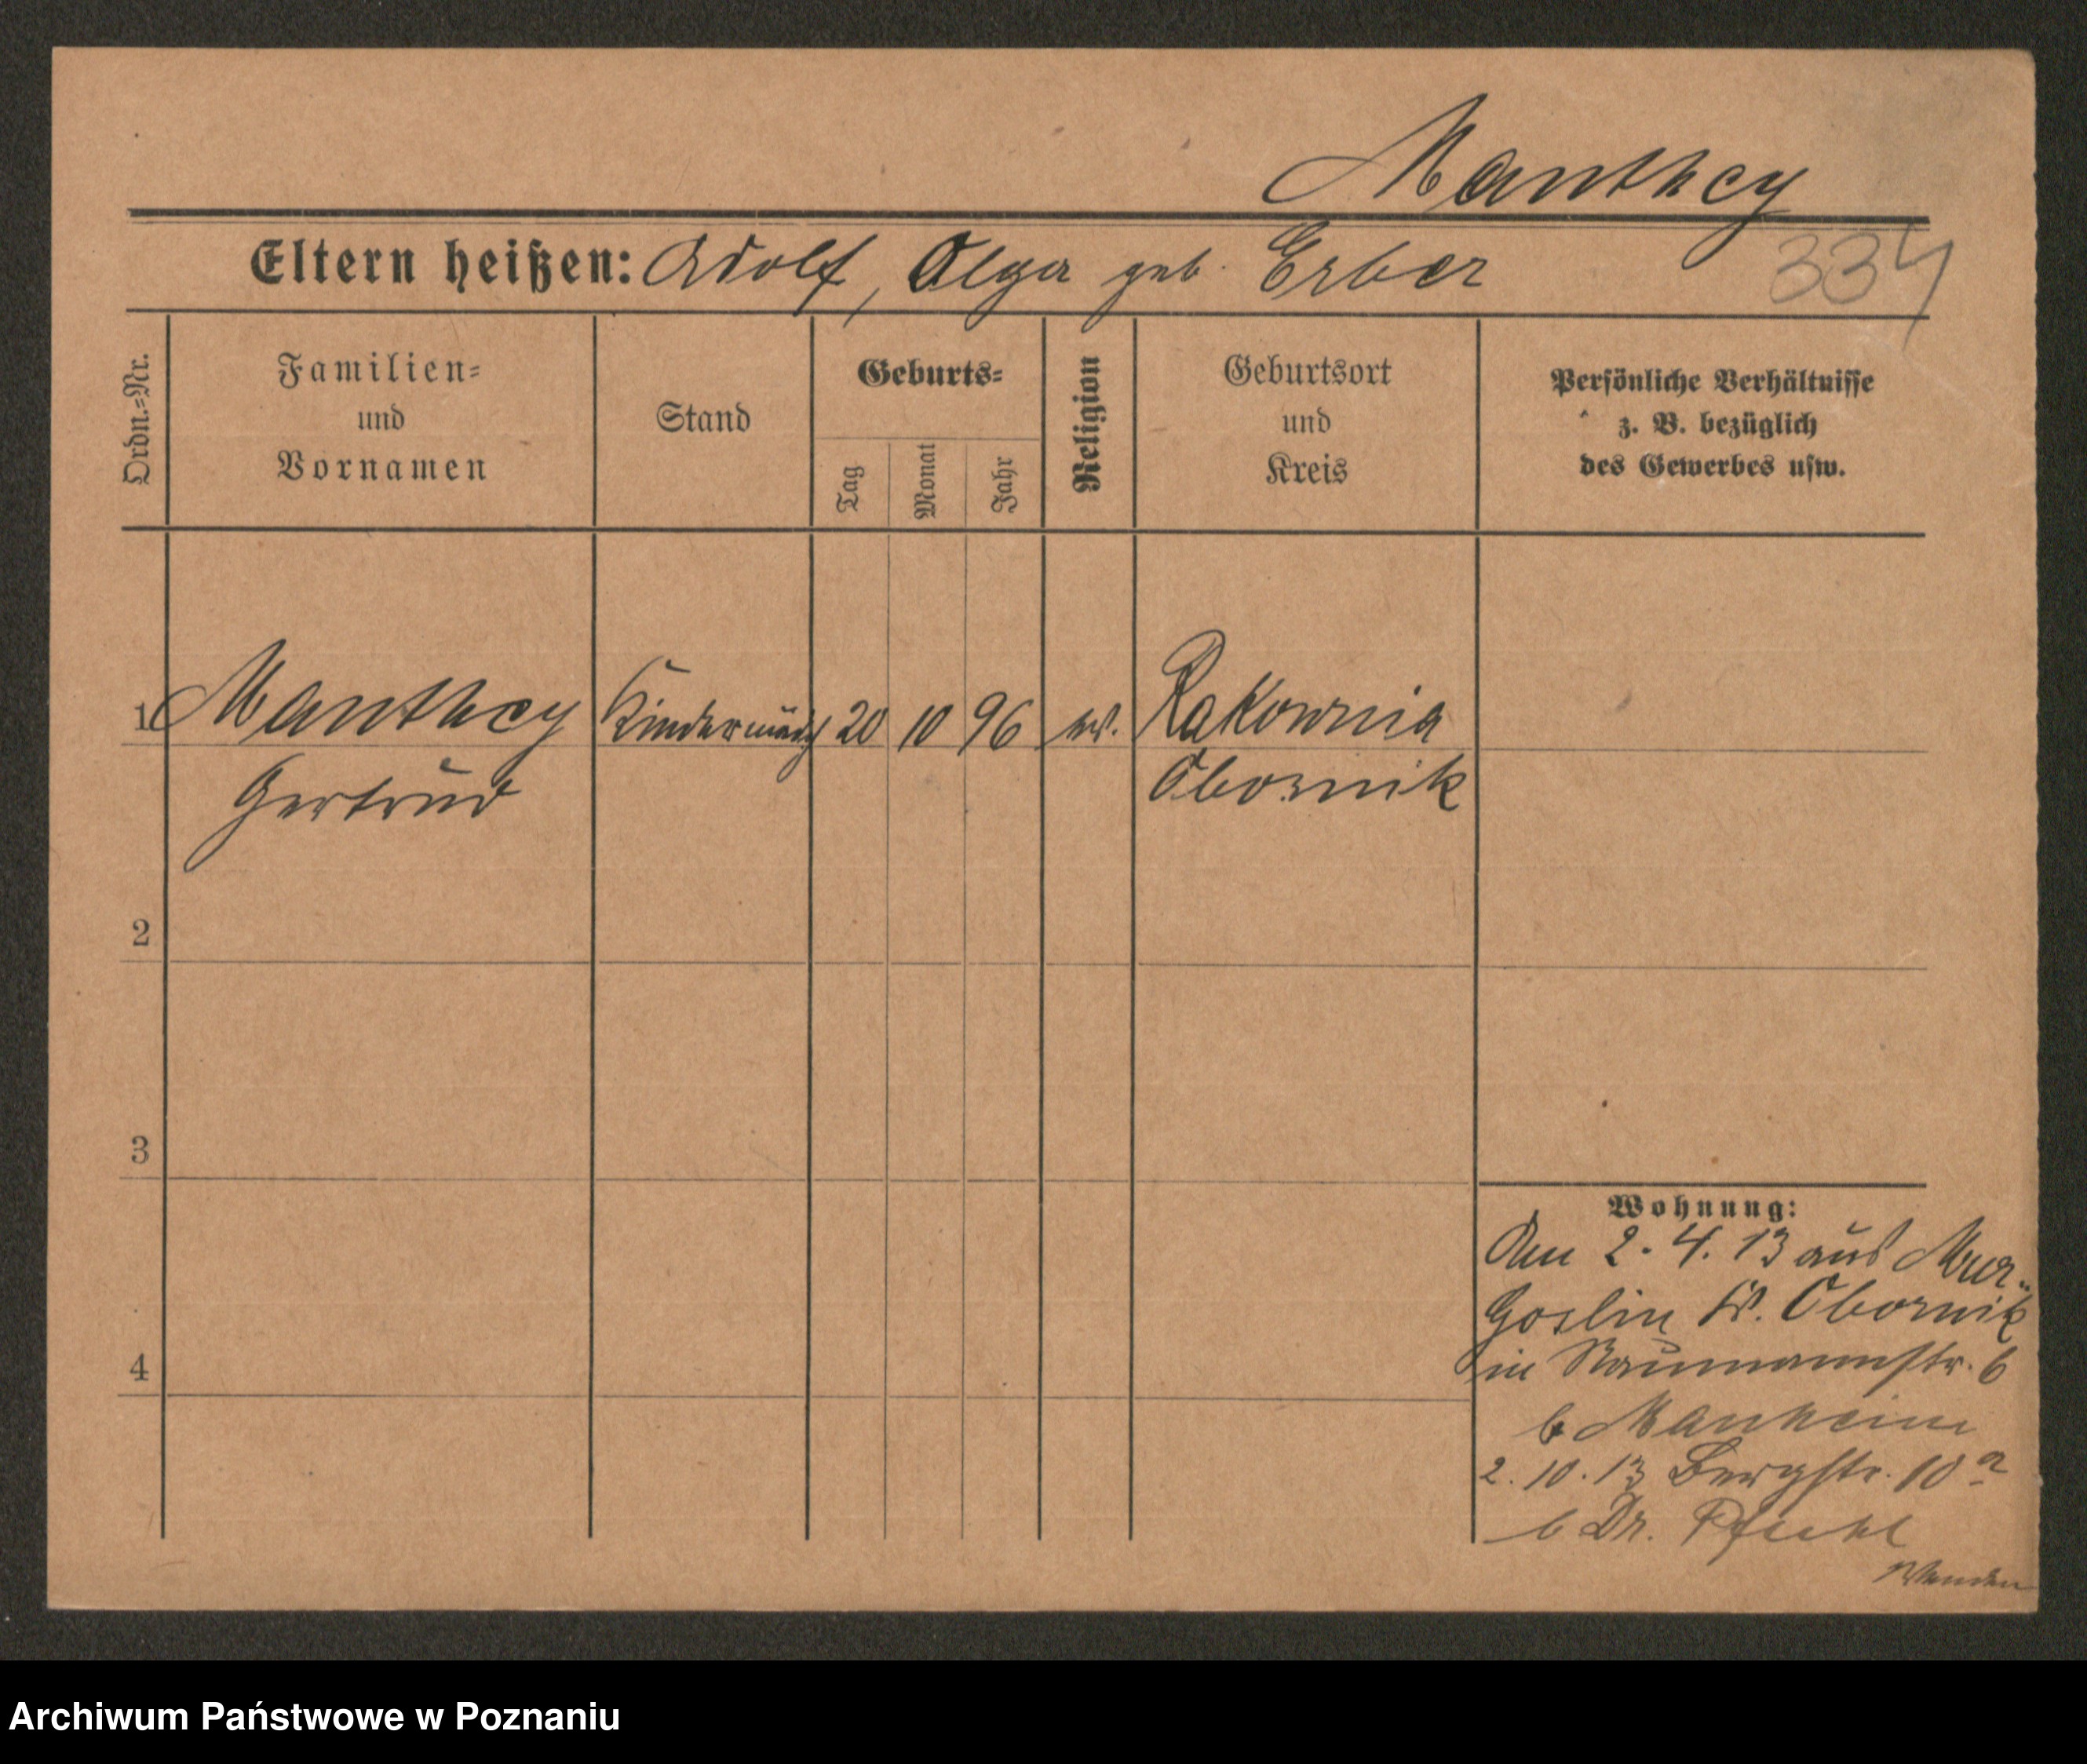 Manthey
Eltern heißen: Adolf, Olga geb. Erber
334
Ordn.=Nr.
Familien=
und
Vornamen
Stand
Geburts=
Tag
Monat
Jahr
Religion
Geburtsort
und
Kreis
Persönliche Verhältnisse
z. B. bezüglich
des Gewerbes usw.
1 Manthey Kindermädch 20 10 96 ev. Rakownia
Gertrud Obornik
2
3
4
Wohnung:
Den 2. 4. 13 aus Mur.
Goslin Kr. Obornik
in Naumannstr. 6
b Manheim
2. 10. 13 Bergstr. 10 a
b Dr. Pfuhl
Wenden
Archiwum Państwowe w Poznaniu